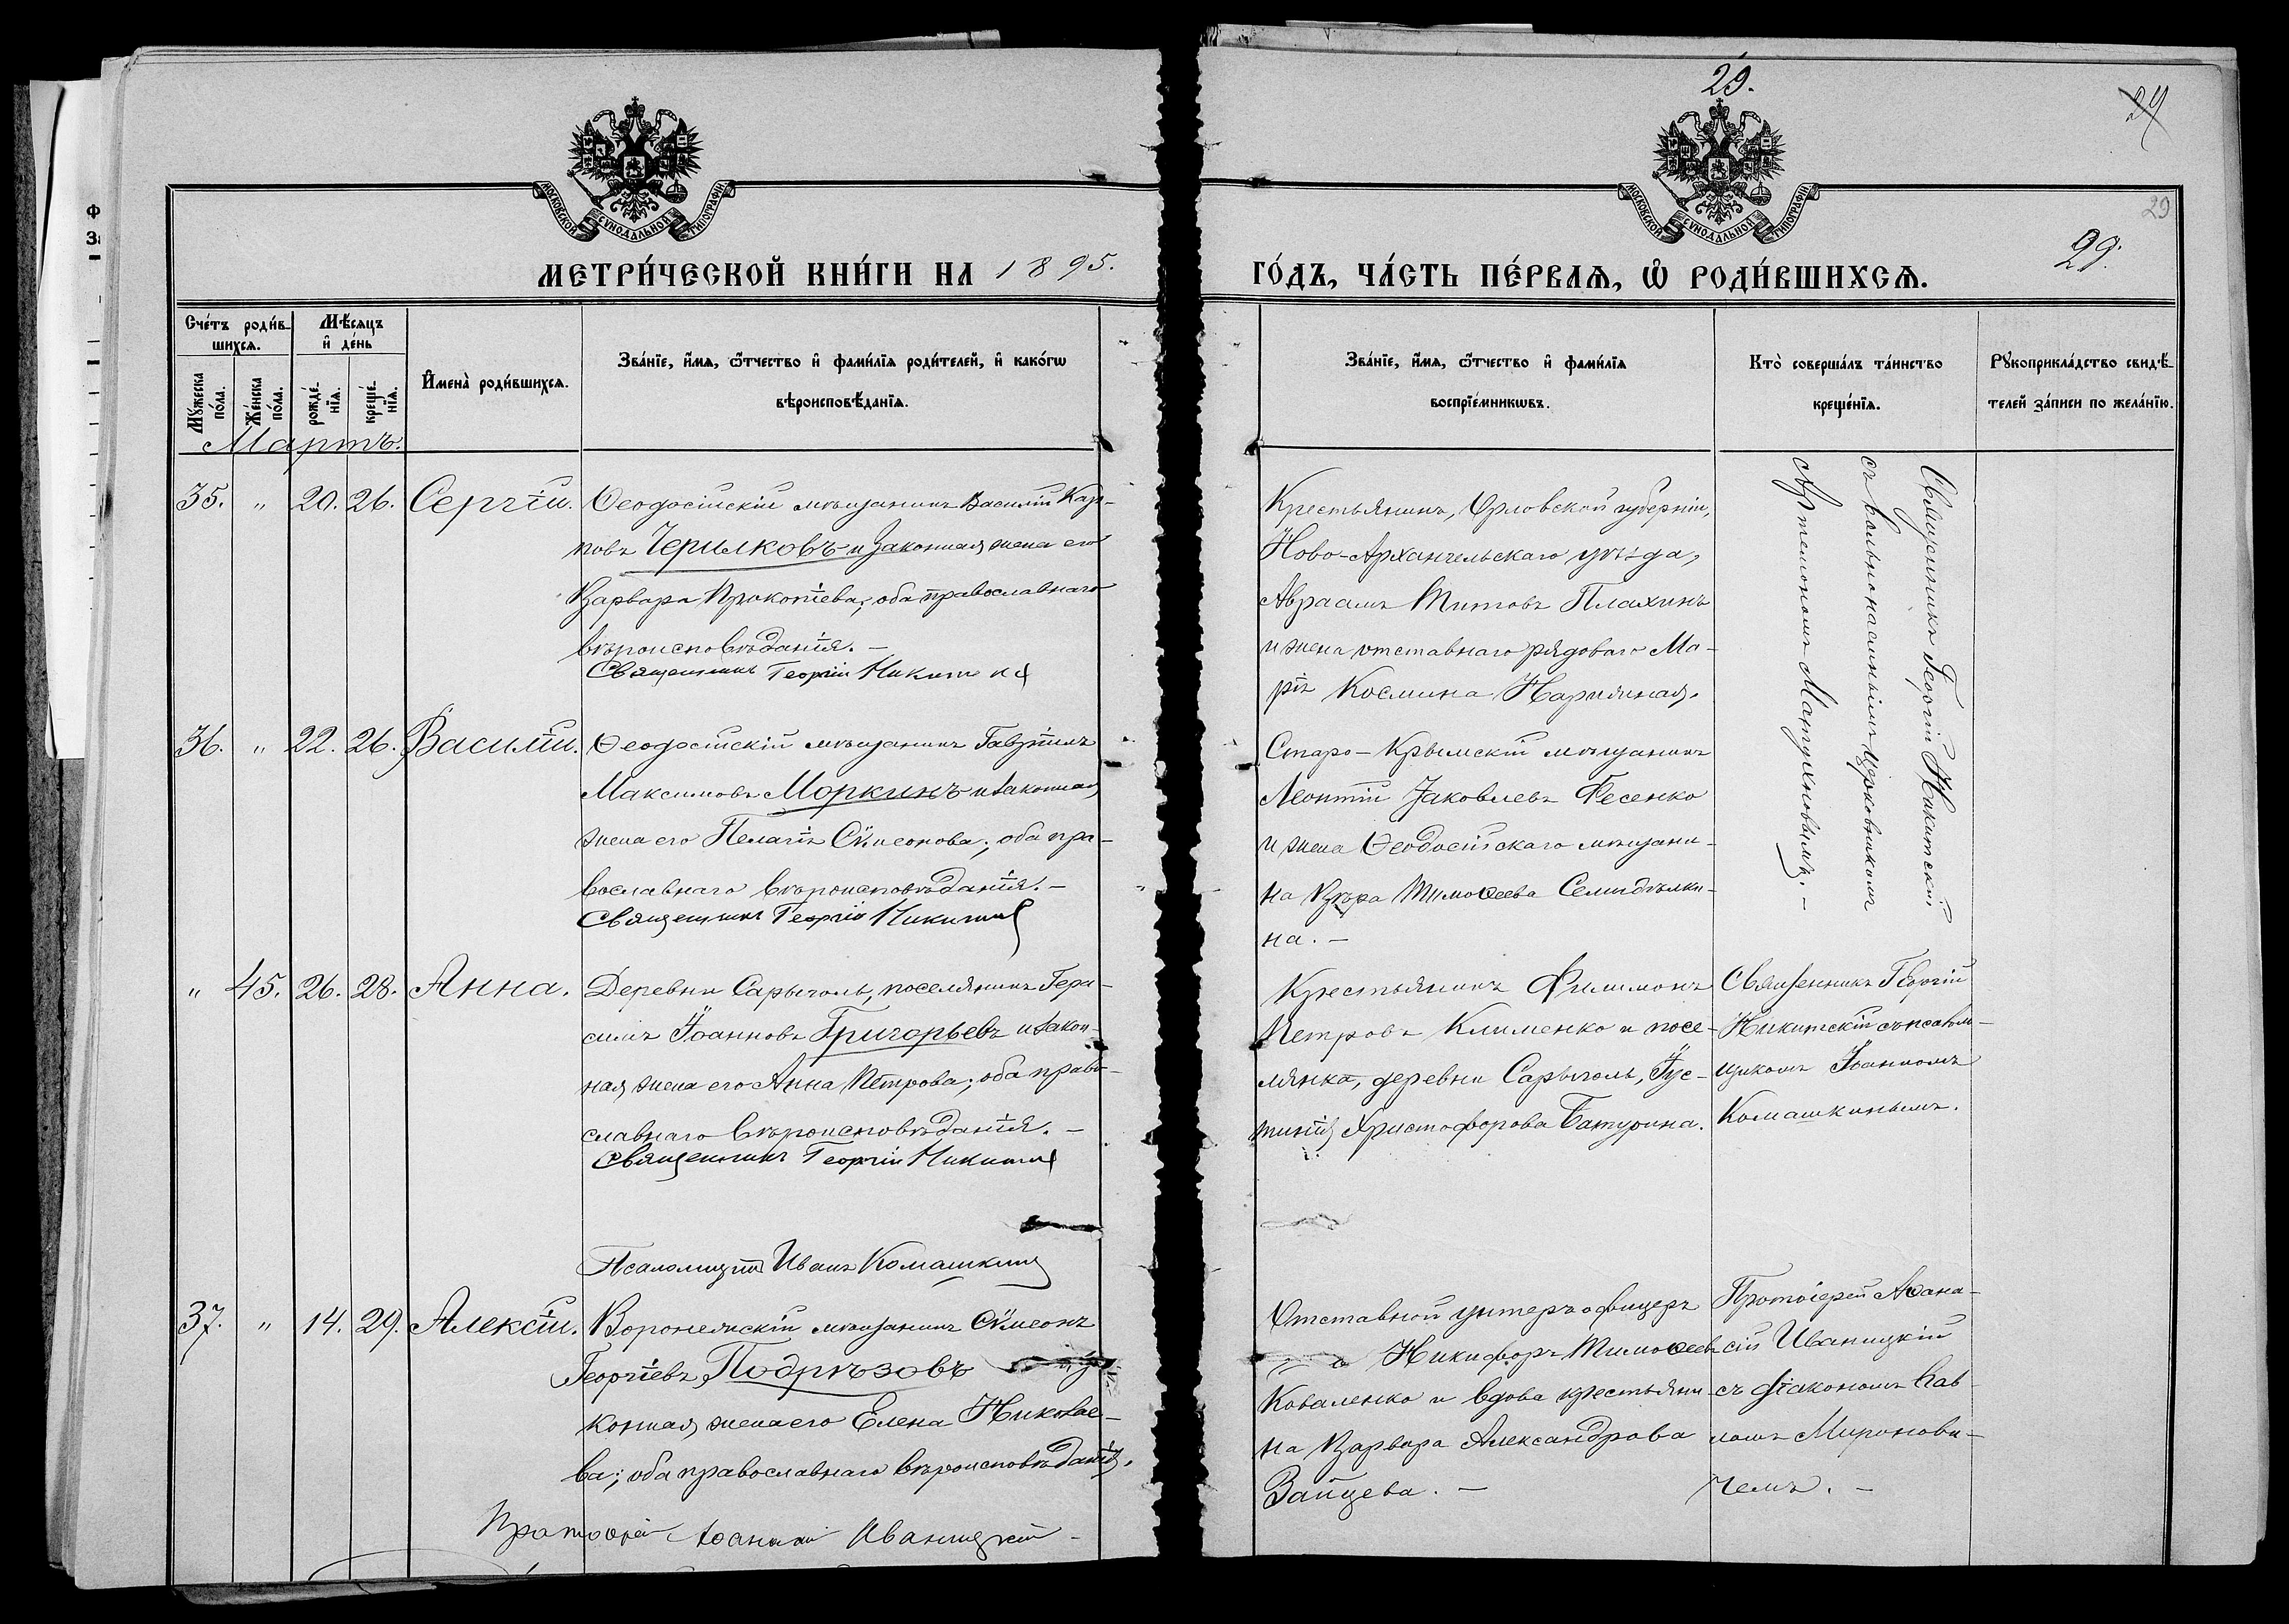 29.
24
29
29.
МОСКОВСКОЙ СѴНОДАЛЬНОЙ ТИПОГРАФІИ
МОСКОВСКОЙ СѴНОДАЛЬНОЙ ТИПОГРАФІИ
МЕТРИ́ЧЕСКОЙ КНИ́ГИ НА 1895.
ГО́ДЪ, ЧА́СТЬ ПЕ́РВАѦ, Ѡ҆ РОДИ́ВШИХСѦ.
Сче́тъ роди́в-
шихсѧ.
Мѣ́сѧцъ
и҆ де́нь
Мꙋ́жеска
по́ла.
Же́нска
по́ла.
рожде́-
нїѧ.
креще́-
нїѧ.
И҆мена̀ роди́вшихсѧ.
Зва́нїе, и҆́мѧ, ѻ҆́тчество и҆ фами́лїѧ роди́телей, и҆ како́гѡ
вѣроисповѣ́данїѧ.
Зва́нїе, и҆́мѧ, ѻ҆́тчество и҆ фами́лїѧ
воспрїе́мникѡвъ.
Кто̀ соверша́лъ та́инство
креще́нїѧ.
Рꙋкоприкла́дство свидѣ́-
телей за́писи по жела́нїю.
Мартъ.
35. " 20. 26. Сергій. Ѳеодосійскій мѣщанинъ Василій Кар-
повъ Черилковъ и законная жена его
Варвара Прокопіева; оба православнаго
вѣроисповѣданія. –
Священникъ Георгій Никитскій
Крестьянинъ, Орловской губерніи,
Ново-Архангельскаго уѣзда,
Авраамъ Титовъ Плахинъ
и жена отставнаго рядоваго Ма-
рія Космина
Священникъ Георгій Никитскій
съ вольнонаемнымъ церковникомъ
Мапухновымъ. –
36. " 22. 26. Василій. Ѳеодосійскій мѣщанинъ Гавріилъ
Максимовъ Моркинъ и законная
жена его Пелагія Сѷмеонова; оба пра-
вославнаго вѣроисповѣданія. –
Священникъ Георгій Никитскій
Старо-Крымскій мѣщанинъ
Леонтій Іаковлевъ Фесенко
и жена Ѳеодосійскаго мѣщани-
на Вѣра Тимоѳеева Семидѣлки-
на. –
" 45. 26. 28. Анна. Деревни Сарыголь, поселянинъ Гера-
симъ Іоанновъ Григорьевъ и закон-
ная жена его Анна Петрова; оба право-
славнаго вѣроисповѣданія. –
Священникъ Георгій Никитскій
Псаломщикъ Иванъ Комашкинъ
Крестьянинъ Филимонъ
Петровъ Клименко и посе-
лянка, деревни Сарыголь, Іус-
тинія Христофорова Батурина.
Священникъ Георгій
Никитскій съ псалом-
щикомъ Іоанномъ
Комашкинымъ.
37. " 14. 29. Алексій. Воронежскій мѣщанинъ Сѷмеонъ
Георгіевъ Подрѣзовъ
конная жена его Елена Николае-
ва; оба православнаго вѣроисповѣданія.
Протоіерей Аѳанасій Иваницкій
Отставной унтеръ офицеръ
Никифоръ Тимоѳеевъ
Коваленко и вдова крестьяни-
на Варвара Александрова
Зайцева. –
Протоіерей Аѳана-
сій Иваницкій
съ діакономъ Пав-
ломъ Миронови-
чемъ. –